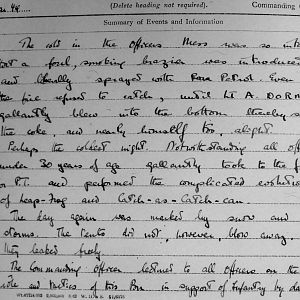 (Delete heading not required).
Commanding
Summary of Events and Information
The cold in the Officers Mess was so
that a foul, smoking brazier was introduced
and liberally sprayed with Raw Petrol. Even
the fire refused to catch, until Lt A. DOR
gallantly blew into the bottom thereby
the coke, and nearly himself too, alight.
Perhaps the coldest night. Notwithstanding all off
under 30 years of age gallantly took to the
P.T. and performed the complicated
of Leap-frog and Catch-as-Catch-can.
The day again was marked by snow and
storms. The tents did not, however, blow away,
They leaked freely.
The Commanding Officer lectured to all Officers on the
role and tactics of this Bn. in support of Infantry by da